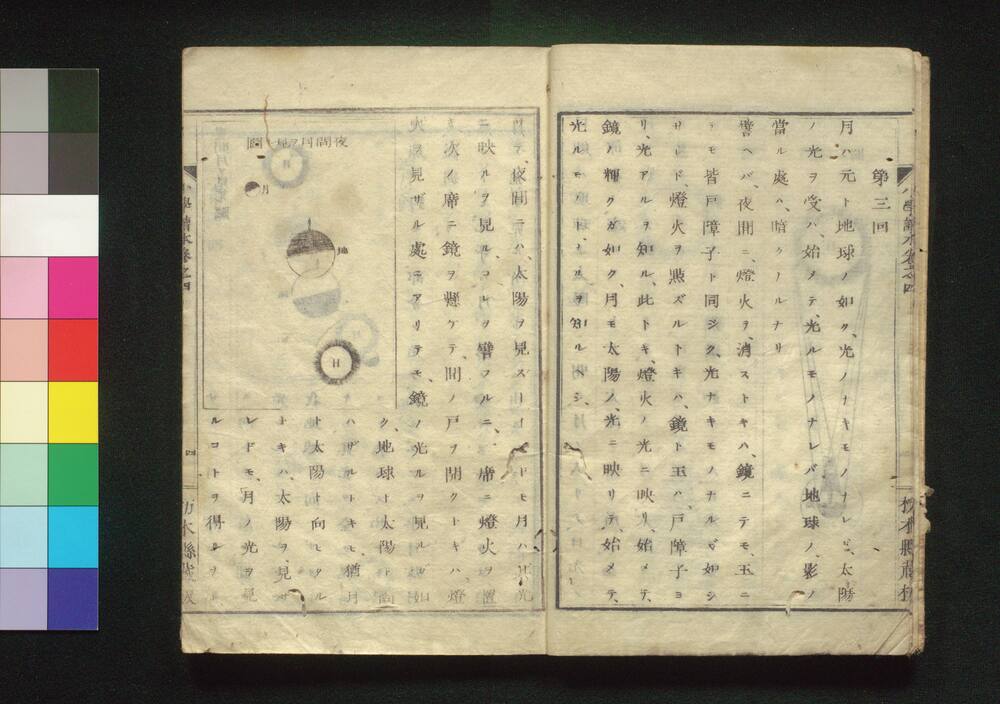 第三回
月ハ元ト地球ノ如ク、光ノナキモノナレド、太陽
ノ光ヲ受ハ、始メテ、光ルモノナレバ、地球ノ、影ノ
當ル處ハ、暗クナルナリ
譬ヘバ、夜間ニ、燈火ヲ、消ストキハ、鏡ニテモ、玉ニ
テモ、皆戸障子ト同ジク、光ナキモノナルガ如シ
サレド、燈火ヲ㸃ズルトキハ、鏡ト玉ハ、戸障子ヨ
リ、光アルヲ知ル、此トキ、燈火ノ光ニ映リ、始メテ、
鏡ノ輝クガ如ク、月モ太陽ノ、光ニ映リテ、始メテ、
光ルモノナルヲ知ルベシ、
夜間ニハ、太陽ヲ見ズトイヘドモ月ハ其光
ニ映ルヲ見ル、コレヲ譬フルニ、一席ニ燈火ヲ置
キ次ノ席ニ鏡ヲ懸ケテ、間ノ戸ヲ開クトキハ、燈
火ヲ見ザル處ニアリテモ、鏡ノ光ルヲ見ルガ如
ク、地球ト太陽ト向
ハザルトキモ、猶月
ト太陽ト向ヒタル
トキハ、太陽ヲ、見ザ
レドモ、月ノ光ヲ見
ルコトヲ得ルヲ
夜間月ヲ見ル圖
日
月
地
日
小學讀本卷之四
四
栃木縣